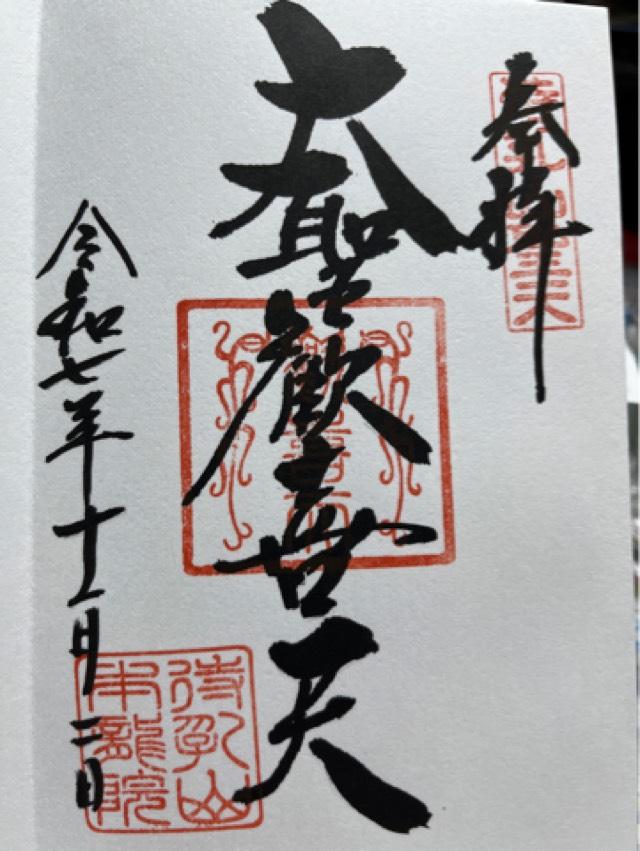 奉拝
大聖歓喜天
令和七年十一月二日
待乳山
本龍院